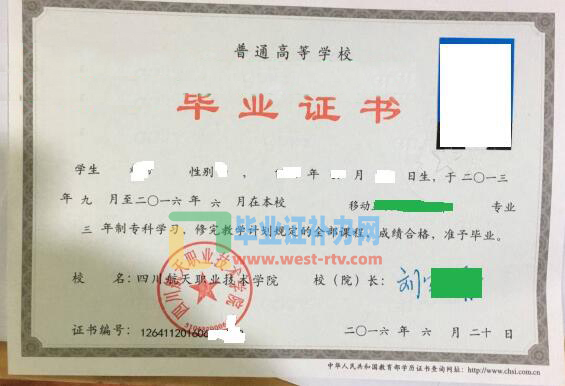 普通高等学校
毕业证书
学生 性别 , 年 月 日生，于二〇一三
年 九 月至二〇一六 年 六 月在本校 移动 专业
三 年制专科学习，修完教学计划规定的全部课程，成绩合格，准予毕业。
毕业证补办网
www.west-rtv.com
校 名：四川航天职业技术学院 校（院）长：
四川航天职业技术学院
证书编号：12641120160 二〇一六 年 六 月 二十 日
中华人民共和国教育部学历证书查询网址：http://www.chsi.com.cn